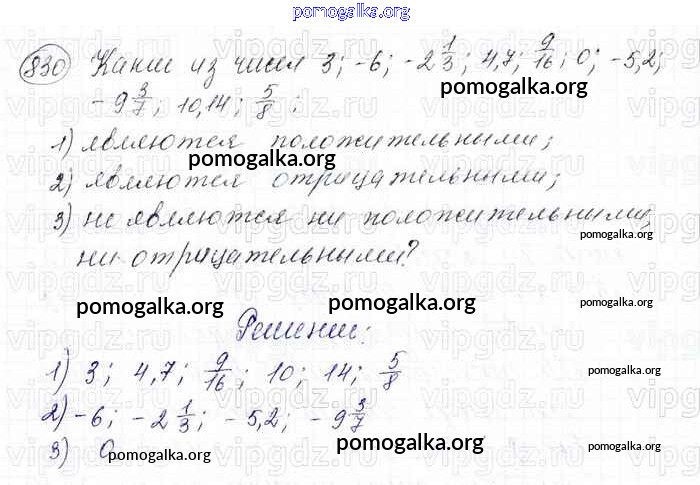 pomogalka.org
830 Какие из чисел 3; -6; -2 1/3; 4,7; 9/16; 0; -5,2;
pomogalka.org
-9 3/7; 10,14; 5/8;
1) являются положительными;
pomogalka.org
2) являются отрицательными;
3) не являются ни положительными,
pomogalka.org
ни отрицательными?
pomogalka.org pomogalka.org pomogalka.org
Решение:
1) 3; 4,7; 9/16; 10; 14; 5/8
2) -6; -2 1/3; -5,2; -9 3/7
pomogalka.org
3) 0
pomogalka.org